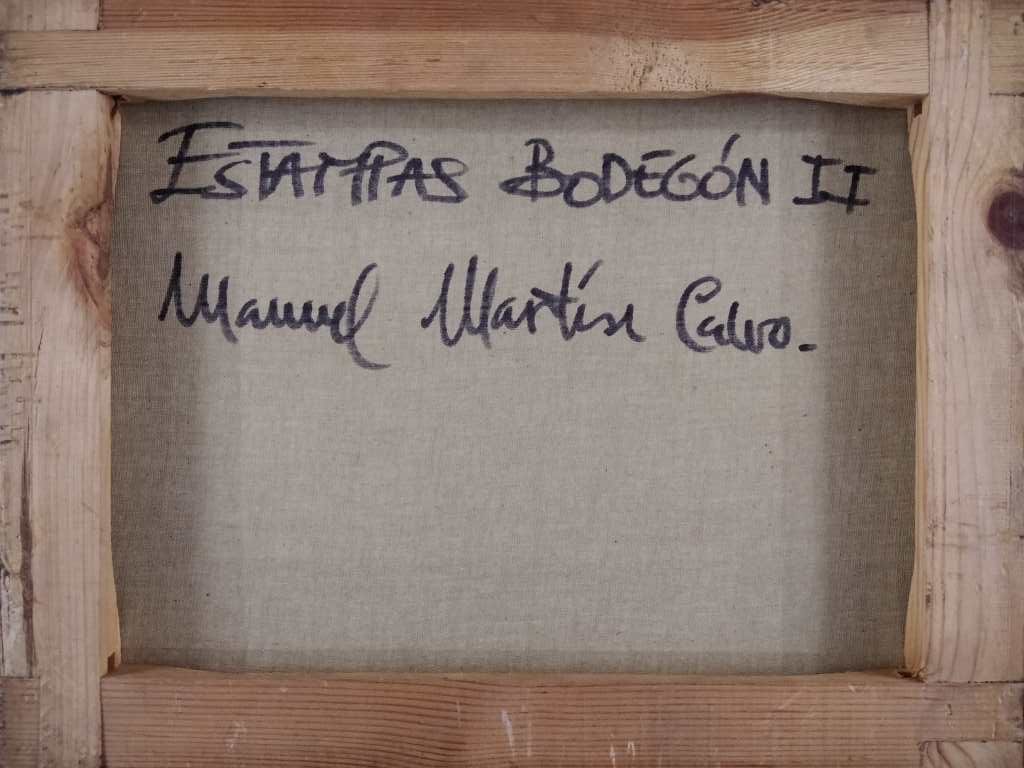 ESTAMPAS BODEGÓN II
Manuel Martín Calvo.